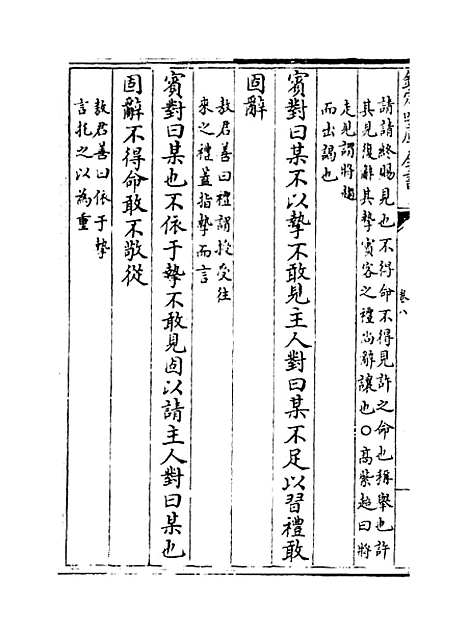 欽定四庫全書
卷八
請請終賜見也不得命不得見許之命也稱舉也許
其見復辭其摯賓客之禮尚辭讓也○高紫超曰將
走見謂將趨
而出謁也
賓對曰某不以摯不敢見主人對曰某不足以習禮敢
固辭
敖君善曰禮謂授受往
來之禮蓋指摯而言
賓對曰某也不依于摯不敢見固以請主人對曰某也
固辭不得命敢不敬從
敖君善曰依于摯
言托之以為重